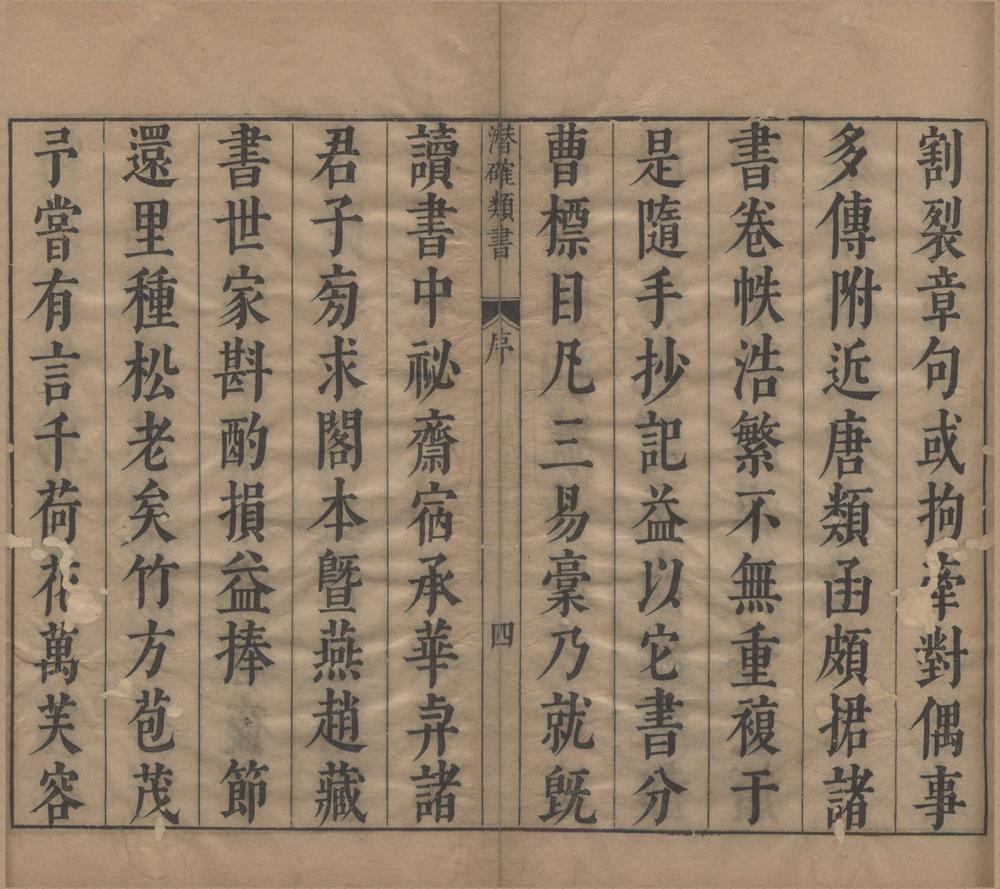 割裂章句或拘牽對偶事
多傳附近唐類函頗捃諸
書卷帙浩繁不無重複于
是隨手抄記益以它書分
曹標目凡三易稾乃就旣
潛確類書 序 四
讀書中祕齋宿承華弆諸
君子匃求閣本曁燕趙藏
書世家斟酌損益捧 節
還里種松老矣竹方苞茂
予嘗有言千荷花萬芙容